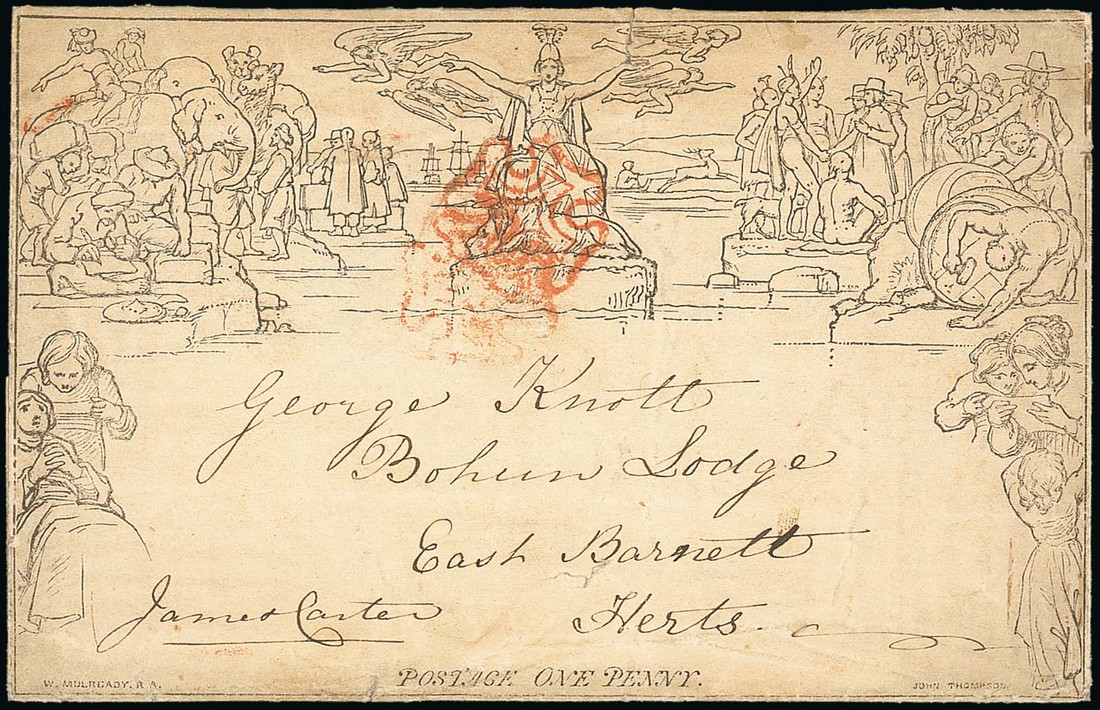 George Knott
Bohun Lodge
East Barnett
James Carter Herts.
POSTAGE ONE PENNY.
W. MULREADY. R.A.
JOHN THOMPSON.